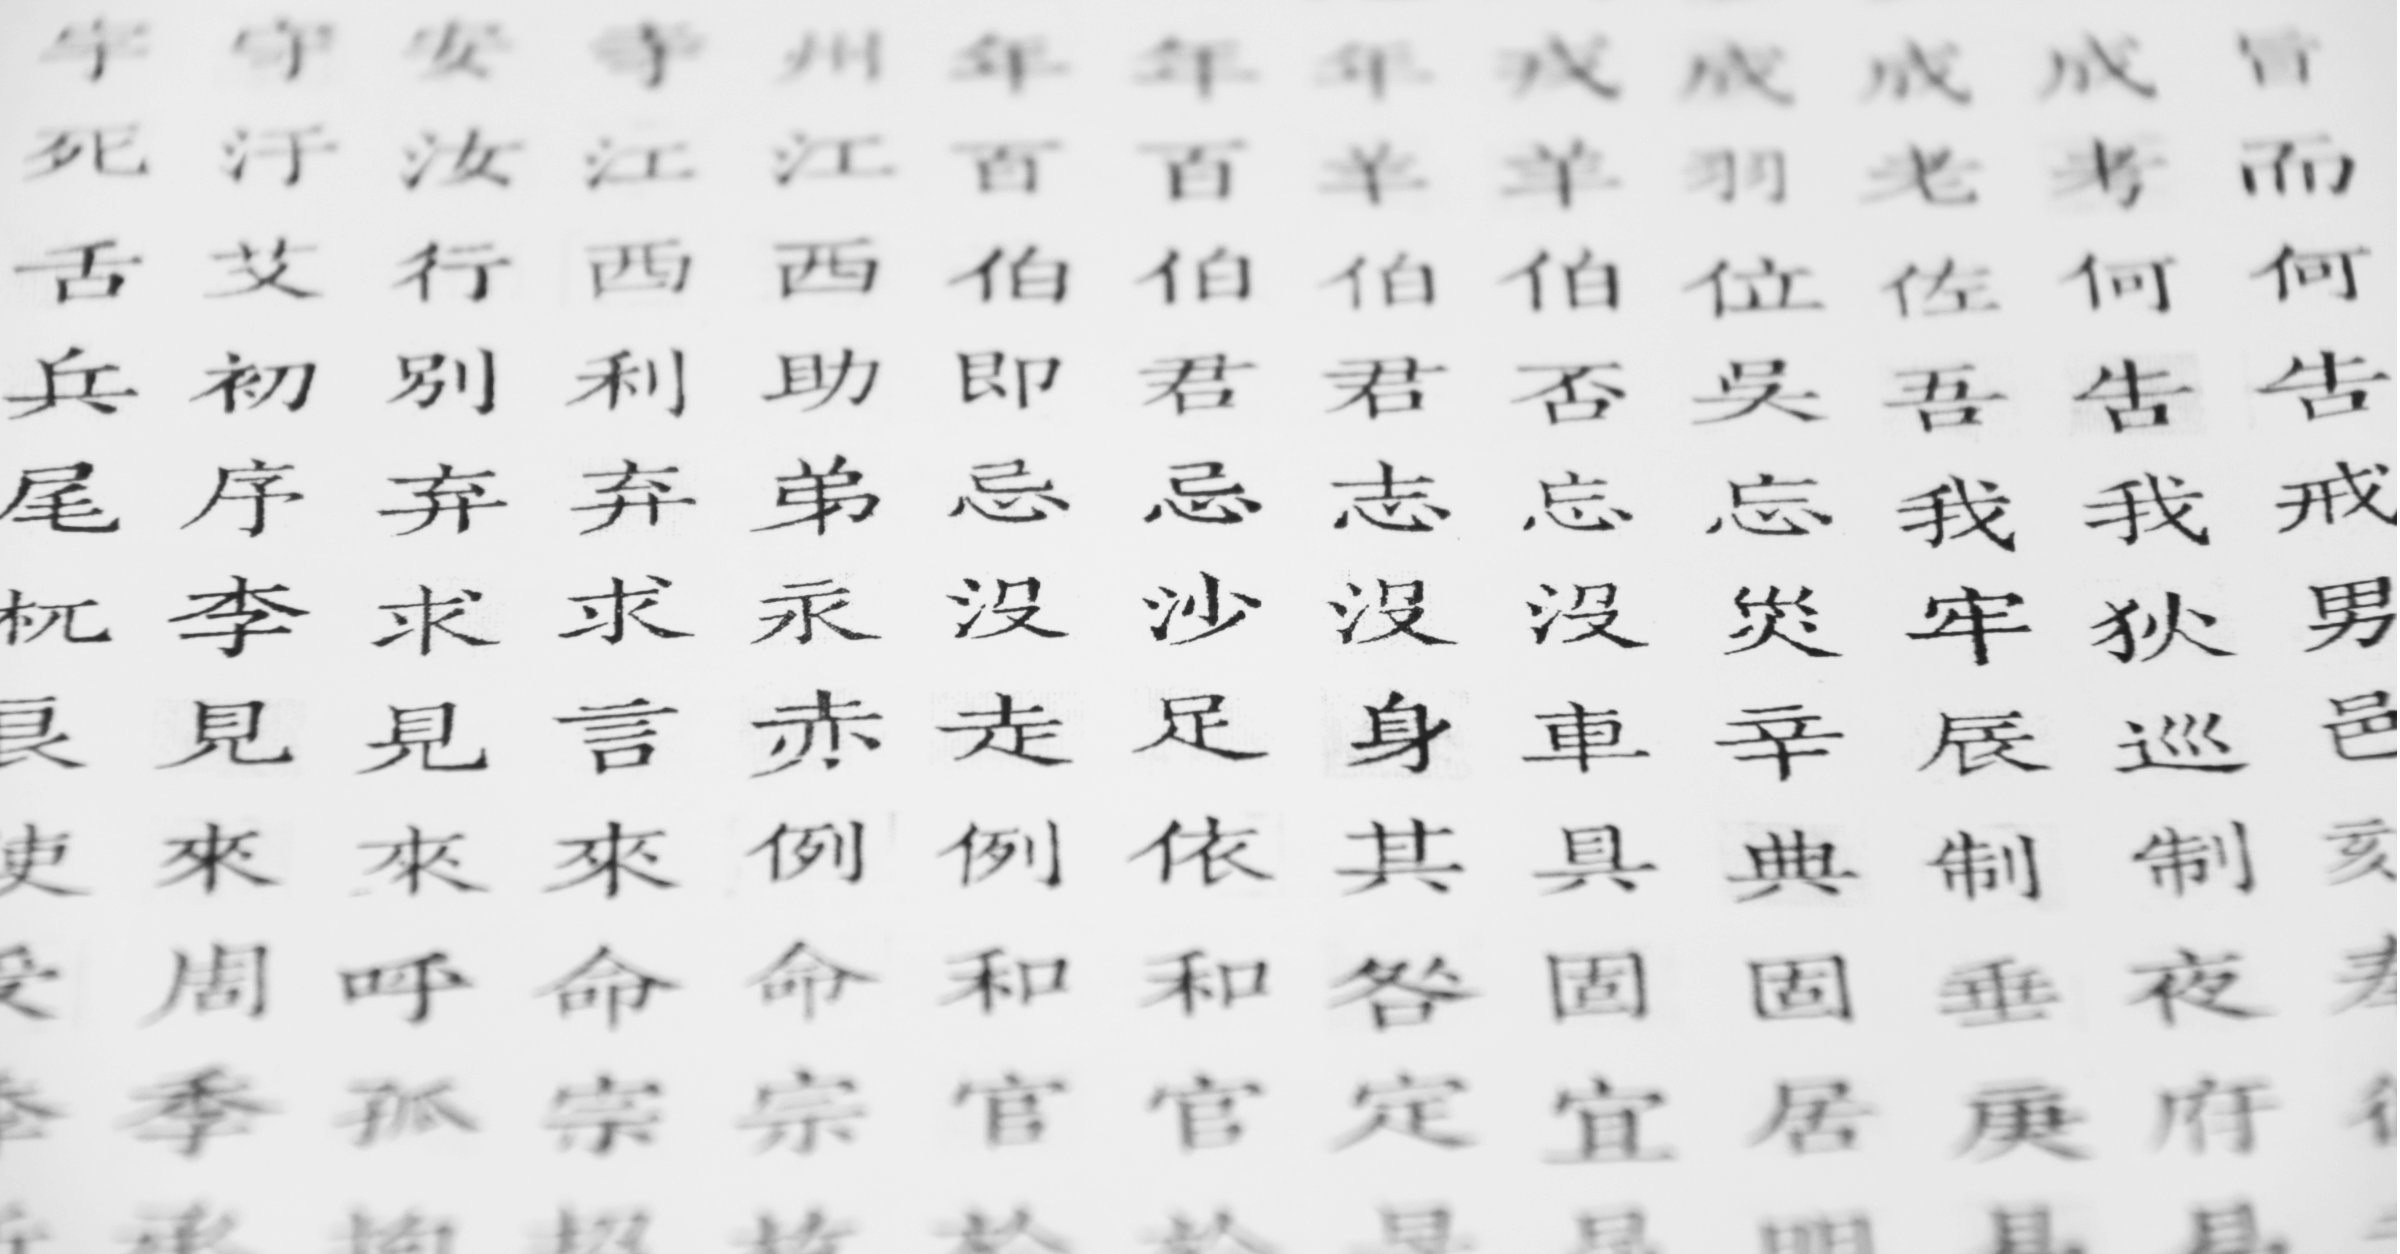 字守安寺州年年年戎成成成旨
死汙汝江江百百羊羊羽老考而
舌艾行西西伯伯伯伯位佐何何
兵初別利助即君君否吳吾告告
尾序弃弃弟忌忌志忘忘我我戒
杬李求求永沒沙沒沒災牢狄男
良見見言赤走足身車辛辰巡邑
使來來來例例依其具典制制
周呼命命和和咎固固垂夜
季孤宗宗官官定宜居庚府
承於於明